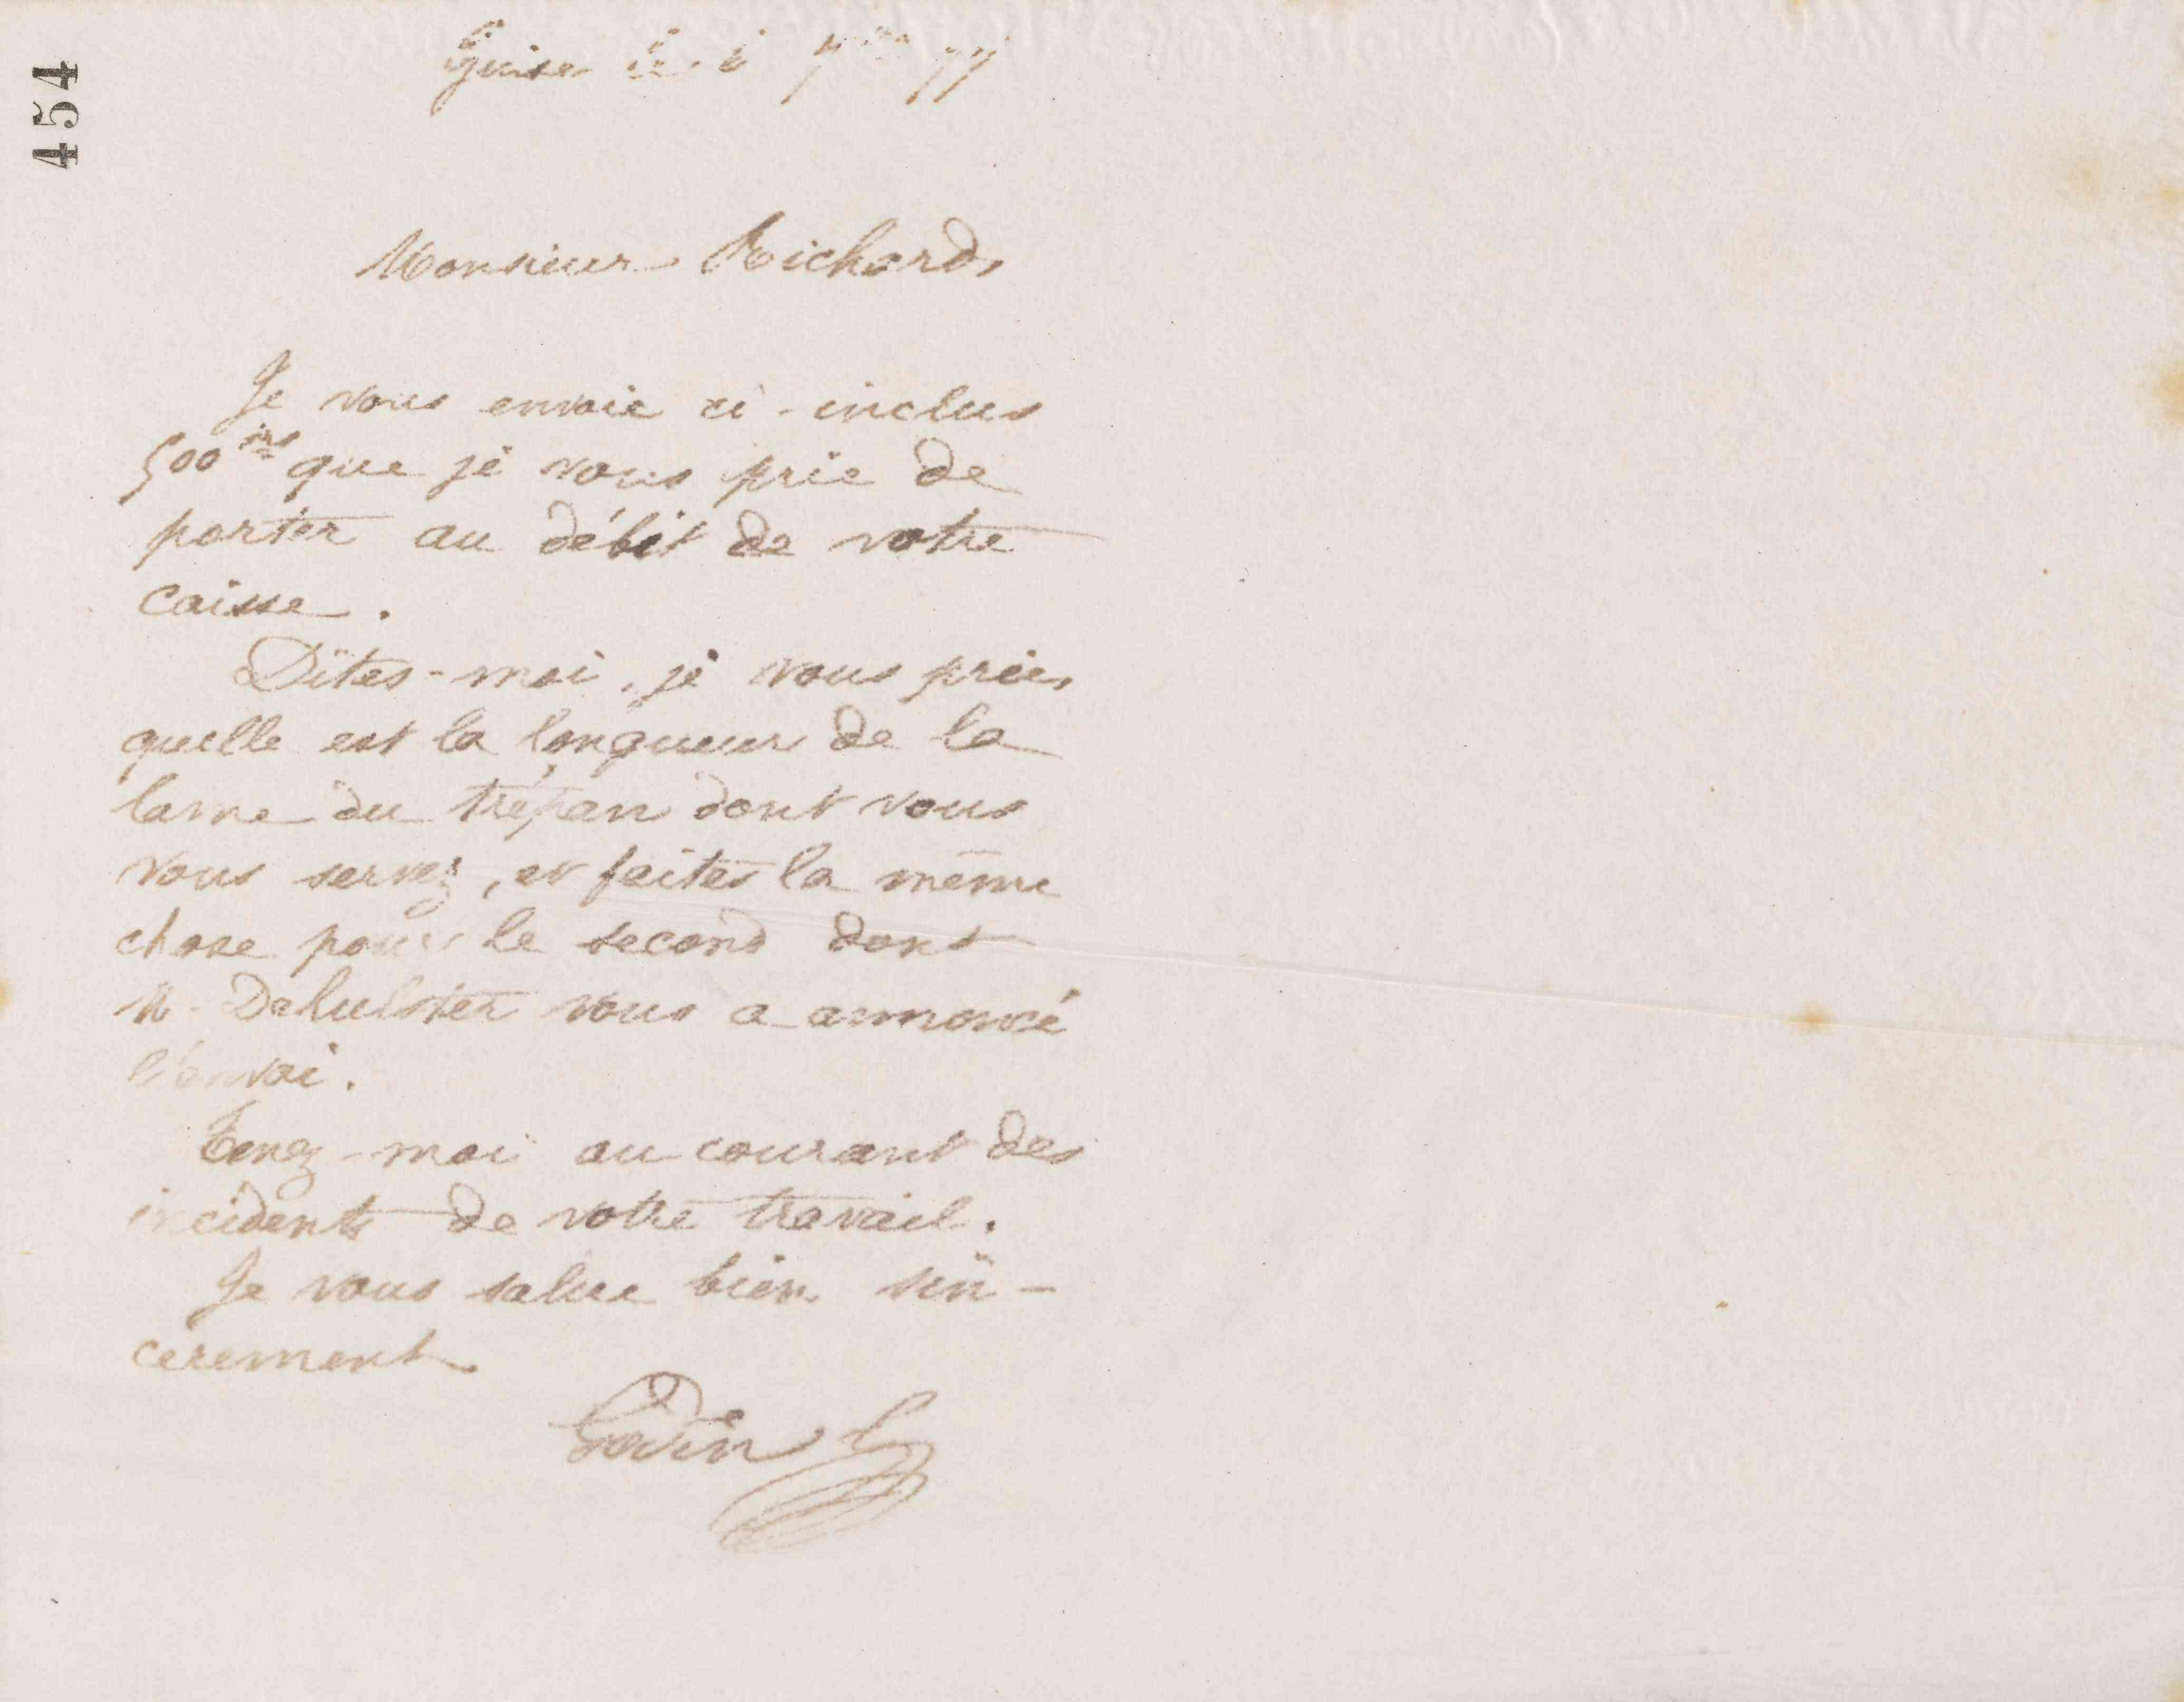 454
Guise le 7bre 77
Monsieur Richard,
Je vous envoie ci-inclus
500 frs que je vous prie de
porter au débit de votre
caisse.
Dites-moi, je vous prie,
quelle est la longueur de la
lame du trépan dont vous
vous servez, et faites la même
chose pour le second dont
M. Dehulster vous a annoncé
l'envoi.
Tenez-moi au courant des
incidents de votre travail.
Je vous salue bien sin-
cèrement
Godin